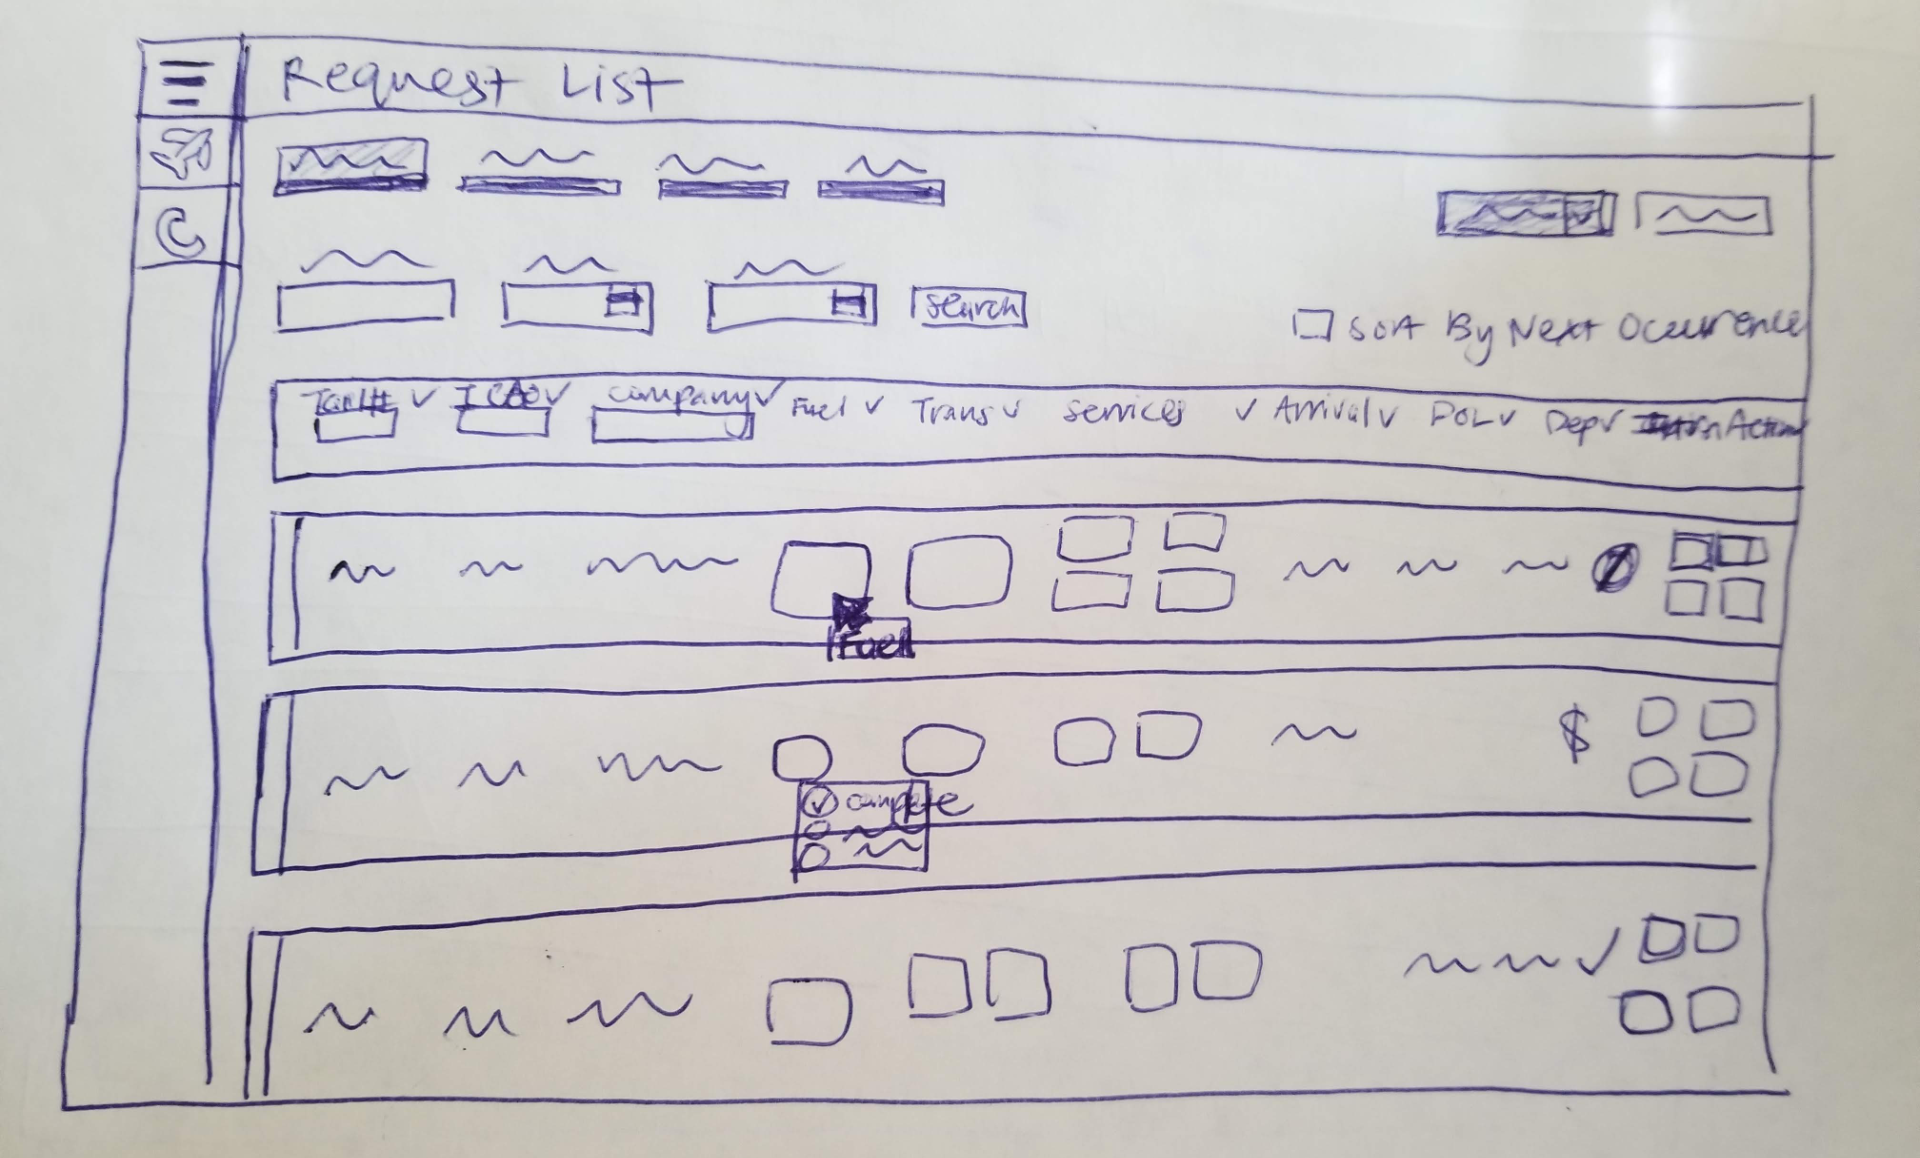 Request List
search
Sort By Next Ocurrence
Tail# ICAO Company Fuel Trans Services Arrival POL Dep Action
Fuel
$
complete